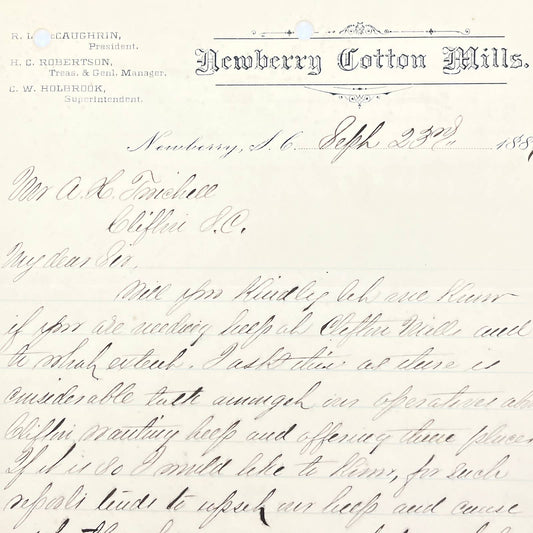 R. L. McCAUGHRIN,
President.
H. C. ROBERTSON,
Treas. & Genl. Manager.
C. W. HOLBROOK,
Superintendent.
Newberry Cotton Mills.
Newberry, S. C. Sept 23rd 188
Mr A. H. Twichell
Clifton S.C.
My dear Sir,
Will you Kindly let me Know
if you are needing help at Clifton Mills and
to what extent. I ask this as there is
considerable talk amongst our operatives
Clifton wanting help and offering them places
If it is so I would like to Know, for such
reports tends to upset our help and cause